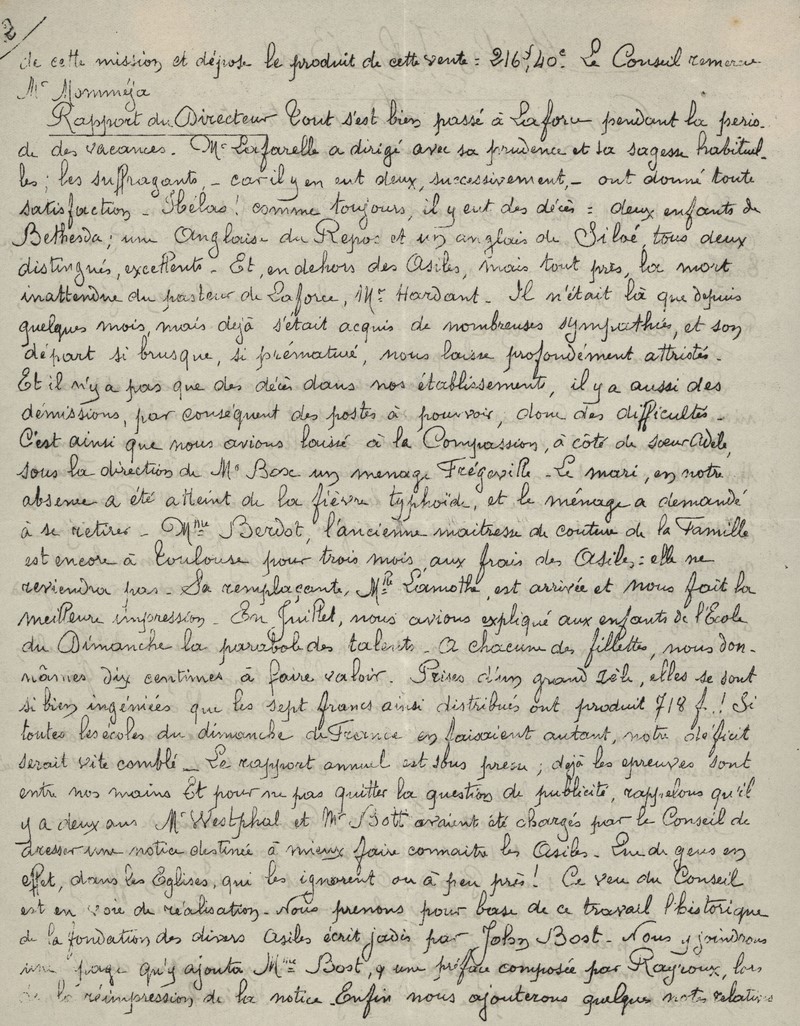 2
de cette mission et dépose le produit de cette vente = 216f,40c. Le Conseil remercie
Mr Mommèja
Rapport du Directeur Tout s'est bien passé à Laforce pendant la perio-
de des vacances. Mr Lafarelle a dirigé avec sa prudence et sa sagesse habituel-
les; les suffragants, - car il y en eut deux, successivement, - ont donné toute
satisfaction - Hélas! comme toujours, il y eut des décès = deux enfants de
Béthesda; une Anglaise du Repos et un anglais de Siloé, tous deux
distingués, excellents - Et, en dehors des Asiles, mais tout près, la mort
inattendue du pasteur de Laforce, Mr Hardant - Il n'était là que depuis
quelques mois, mais déjà s'était acquis de nombreuses sympathies, et son
départ si brusque, si prématuré, nous laisse profondément attristés -
Et il n'y a pas que des décès dans nos établissements, il y a aussi des
démissions, par conséquent des postes à pourvoir, donc des difficultés -
C'est ainsi que nous avions laissé à la Compassion, à côté de soeur Adèle,
sous la direction de Me Bose un menage Frégeville - Le mari, en notre
absence a été atteint de la fièvre typhoïde, et le ménage a demandé
à se retirer - Mme Berdot, l'ancienne maitresse de couture de la Famille
est encore à Toulouse pour trois mois, aux frais des Asiles = elle ne
reviendra pas - Sa remplaçante, Mlle Lamothe, est arrivée et nous fait la
meilleure impression - En Juillet, nous avions expliqué aux enfants de l'Ecole
du Dimanche la parabole des talents - A chacune des fillettes, nous don-
nâmes dix centimes à faire valoir. Prises d'un grand zèle, elles se sont
si bien ingéniées que les sept francs ainsi distribués ont produit 718 f.! Si
toutes les écoles du dimanche de France en faisaient autant, notre déficit
serait vite comblé - Le rapport annuel est sous presse; déjà les epreuves sont
entre nos mains Et pour ne pas quitter la question de publicité, rappelons qu'il
y a deux ans Mr Westphal et Mr Bost avaient été chargés par le Conseil de
dresser une notice destinée à mieux faire connaitre les Asiles - Que de gens en
effet, dans les Eglises, qui les ignorent ou à peu près! Ce veu du Conseil
est en voie de réalisation - Nous prenons pour base de ce travail l'historique
de la fondation des divers Asiles écrit jadis par John Bost - Nous y joindrons
une page qu'y ajouta Mme Bost, & une préface composée par Rayroux, lors
de la réimpression de la notice. Enfin nous ajouterons quelques notes relatives